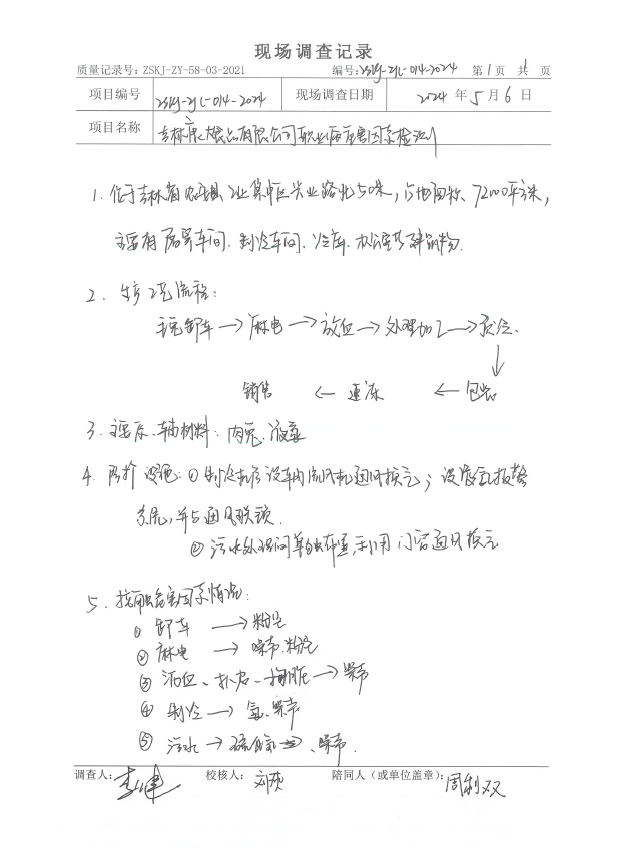 现场调查记录
质量记录号：ZSKJ-ZY-58-03-2021 编号：ZSKJ-ZYL-014-2024 第1页 共 页
项目编号 ZSKJ-ZYL-014-2024 现场调查日期 2024年5月6日
项目名称 吉林康大食品有限公司职业病危害因素检测
1. 位于吉林省农安县工业集中区兴业路北50米，占地面积72000平方米，
主要有屠宰车间、制冷车间、冷库、办公室等建筑物.
2. 生产工艺流程：
毛兔卸车→麻电→放血→处理加工→预冷
销售 ← 速冻 ← 包装
3. 主要原、辅材料：肉兔、液氨
4. 防护设施：①制冷机房设轴流风机通风换气；设液氨报警
系统，并与通风联锁.
②污水处理间单独布置，利用门窗通风换气
5. 接触危害因素情况：
①卸车→粉尘
②麻电→噪声、粉尘
③沥血、扒皮、掏脏→噪声
④制冷→氨、噪声
⑤污水→硫化氢、噪声.
调查人： 校核人： 陪同人（或单位盖章）：周利双